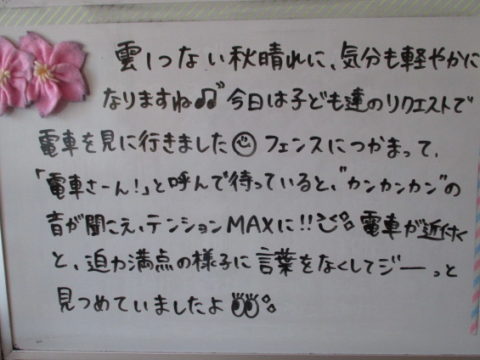 雲1つない秋晴れに、気分も軽やかに
なりますね♫" 今日は子ども達のリクエストで
電車を見に行きました☺ フェンスにつかまって、
「電車さーん!」と呼んで待っていると、"カンカンカン"の
音が聞こえ、テンションMAXに!! 電車が近付く
と、迫力満点の様子に言葉をなくしてジーーっと
見つめていましたよ